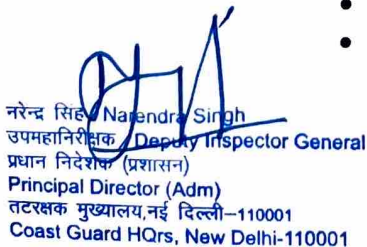 नरेन्द्र सिंह / Narendra Singh
उपमहानिरीक्षक / Deputy Inspector General
प्रधान निदेशक (प्रशासन)
Principal Director (Adm)
तटरक्षक मुख्यालय,नई दिल्ली–110001
Coast Guard HQrs, New Delhi-110001